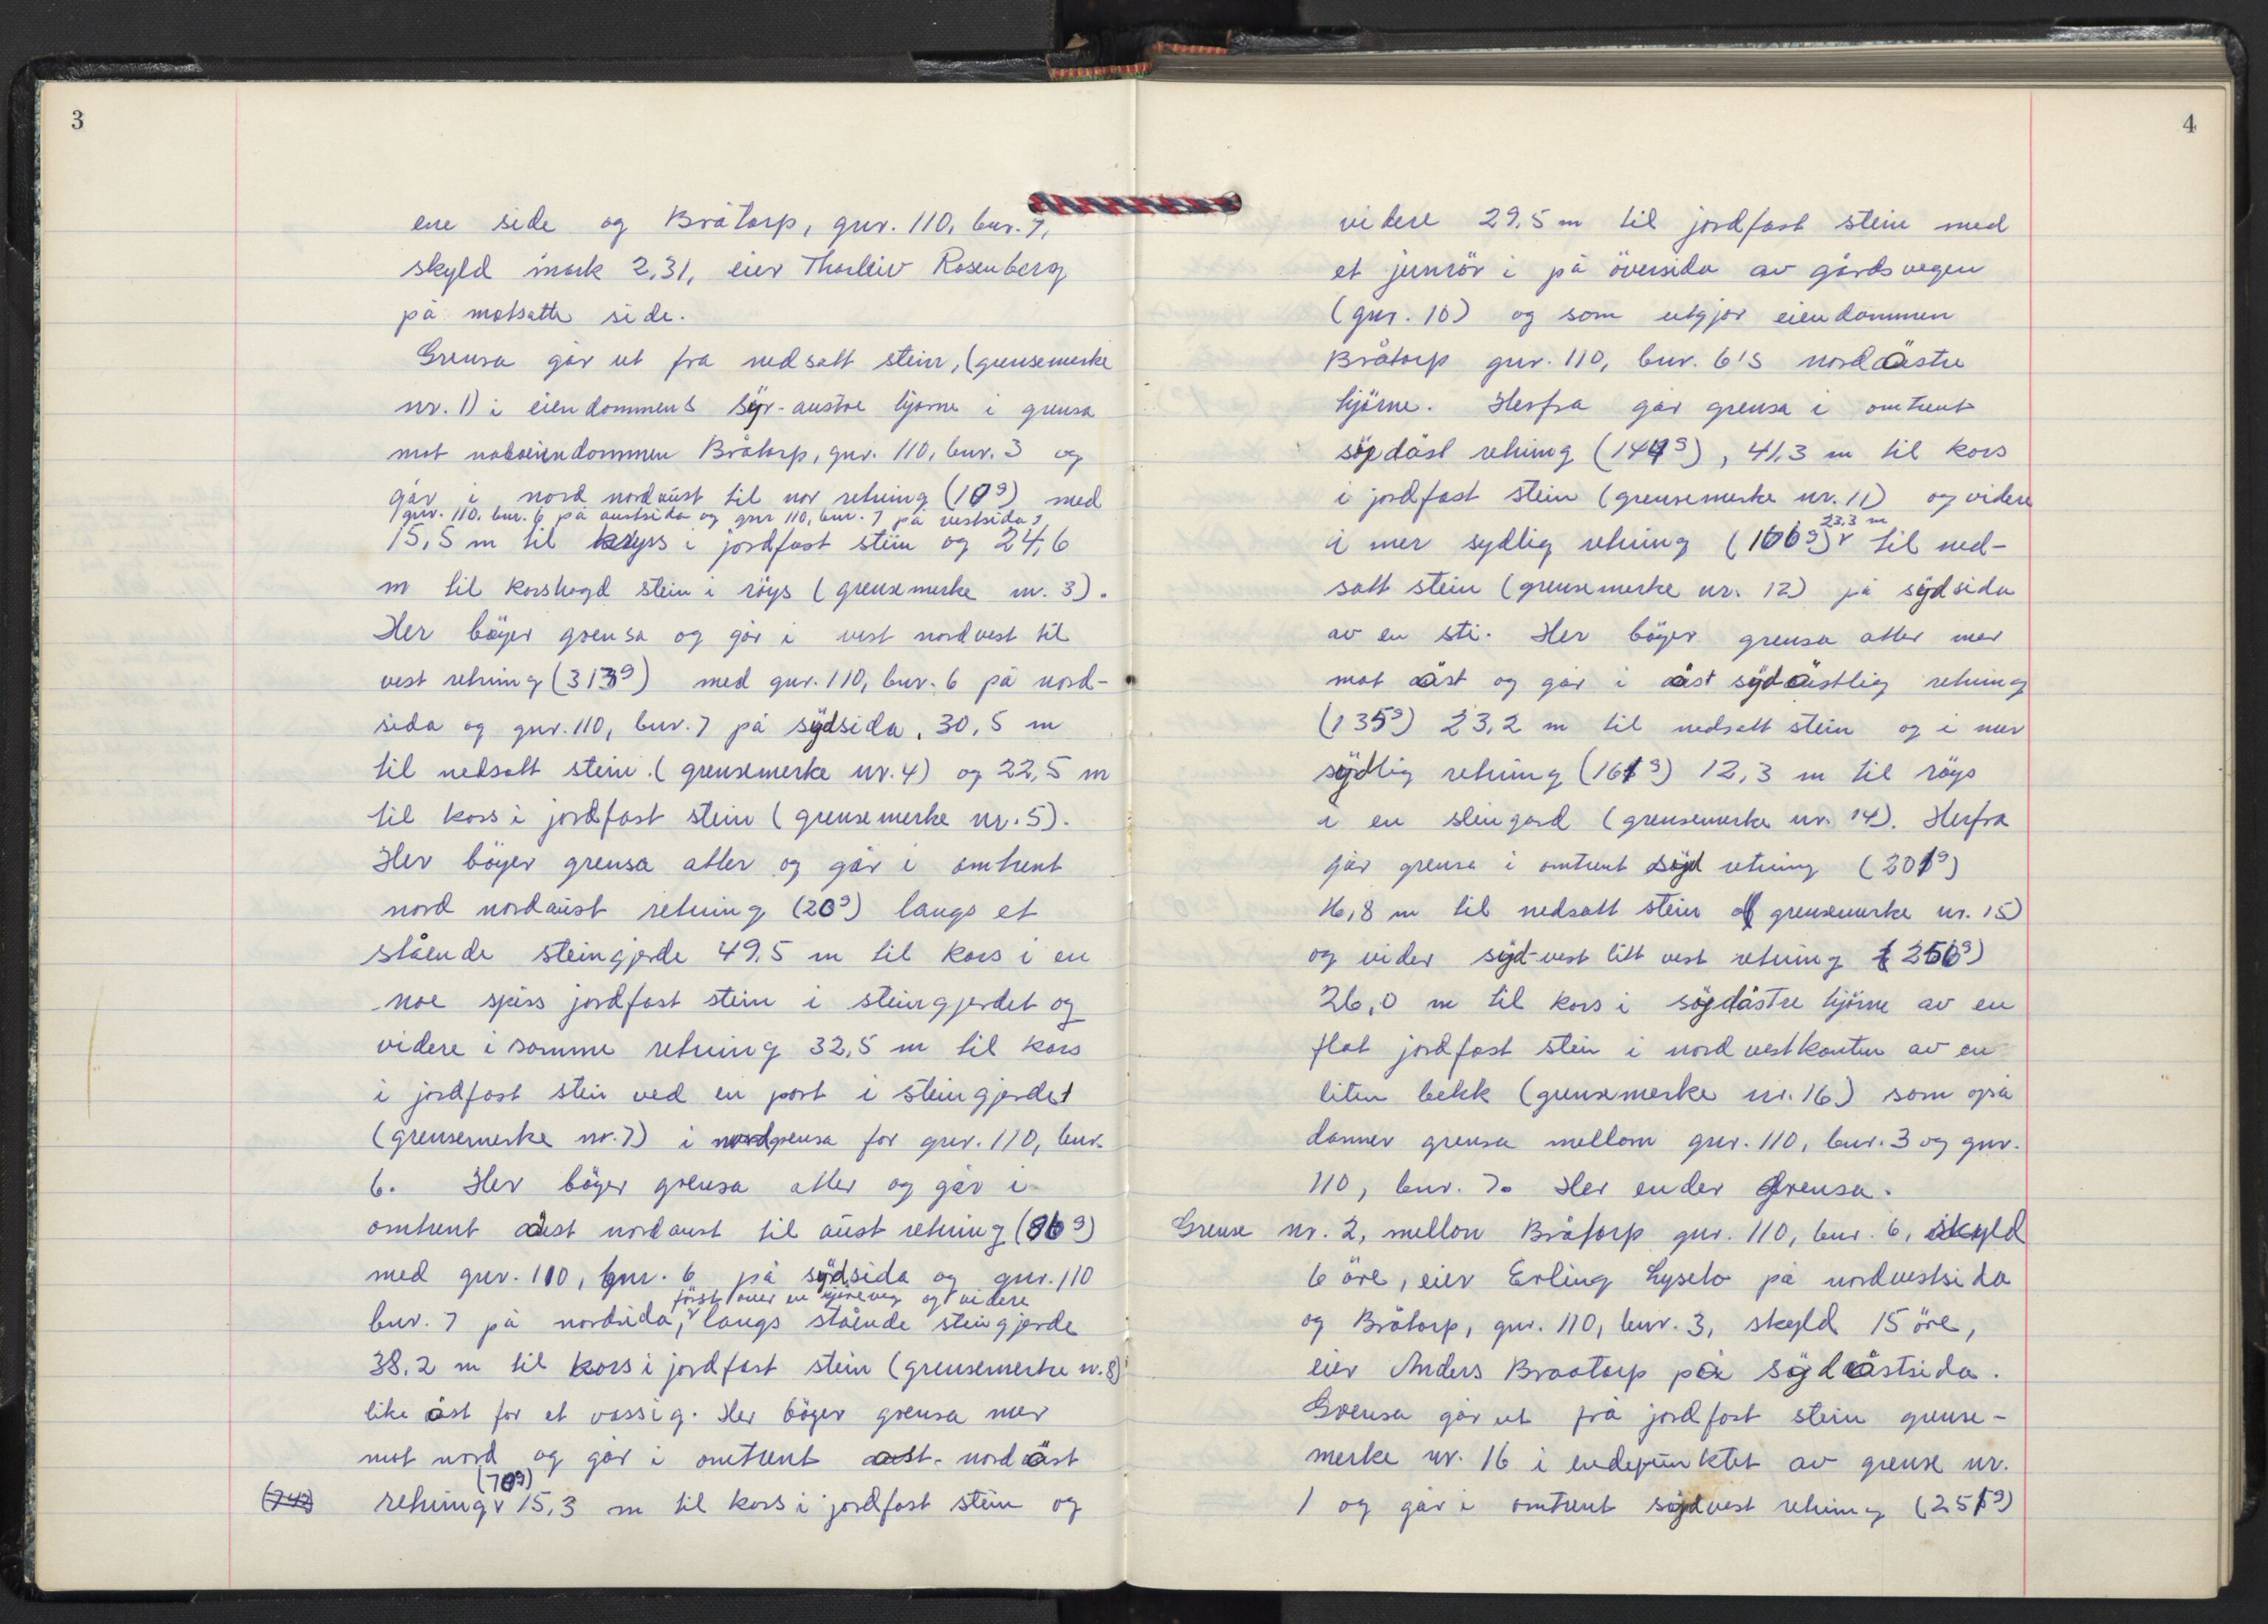 3
ene side og Bråtorp, gnr. 110, bnr. 7,
skyld mark 2,31, eier Thorleiv Rosenberg
på motsatte side.
Grensa går ut fra nedsatt stein, (grensemerke
nr. 1) i eiendommens syr-austre hjørne i grensa
mot naboeiendommen Bråtorp, gnr. 110, bnr. 3 og
går i nord nordaust til nor retning (109) med
gnr. 110, bnr. 6 på austsida og gnr 110, bnr. 7 på vestsida,
15,5 m til kryss i jordfast stein og 24,6
m til korshogd stein i röys (grensemerke nr. 3).
Her böyer grensa og går i vest nordvest til
vest retning (313g) med gnr. 110, bnr. 6 på nord-
sida og gnr. 110, bnr. 7 på sydsida, 30,5 m
til nedsatt stein. (grensemerke nr. 4) og 22,5 m
til kors i jordfast stein (grensemerke nr. 5).
Her böyer grensa atter og går i omtrent
nord nordaust retning (20g) langs et
stående steingjerde 49,5 m til kors i en
noe spiss jordfast stein i steingjerdet og
videre i samme retning 32,5 m til kors
i jordfast stein ved en port i steingjerdet
(grensemerke nr. 7) i nordgrensa for gnr. 110, bnr.
6. Her böyer grensa atter og går i
omtrent aust nordaust til aust retning (86g)
med gnr. 110, bnr. 6 på sydsida og gnr. 110
först over en kjöreveg og videre
bnr. 7 på nordsida, langs stående steingjerde
38,2 m til kors i jordfast stein (grensemerke nr. 8)
like åst for et vassig. Her böyer grensa mer
mot nord og går i omtrent aust-nordåst
(70g)
(742) retning 15,3 m til kors i jordfast stein og
4
videre 29,5 m til jordfast stein med
et jernrör i på översida av gårdsvegen
(gnr. 10) og som utgjør eiendommen
Bråtorp gnr. 110, bnr. 6's nordöstre
hjörne. Herfra går grensa i omtrent
sydåst retning (144g), 41,3 m til kors
i jordfast stein (grensemerke nr. 11) og videre
23,3 m
i mer sydlig retning (166g) til ned-
satt stein (grensemerke nr. 12) på sydsida
av en sti. Her böyer grensa atter mer
mot åst og går i åst sydåstlig retning
(135g) 23,2 m til nedsatt stein og i mer
sydlig retning (161g) 12,3 m til röys
i en steingard (grensemerke nr. 14). Herfra
går grensa i omtrent syd retning (201g)
16,8 m til nedsatt stein (grensemerke nr. 15)
og vider syd-vest litt vest retning (256g)
26,0 m til kors i sydåstre hjörne av en
flat jordfast stein i nordvestkanten av en
liten bekk (grensemerke nr. 16) som også
danner grensa mellom gnr. 110, bnr. 3 og gnr.
110, bnr. 7. Her ender grensa.
Grense nr. 2, mellom Bråtorp gnr. 110, bnr. 6, skyld
6 öre, eier Erling Lyseto på nordvestsida
og Bråtorp, gnr. 110, bnr. 3, skyld 15 öre,
eier Anders Braatorp på sydåstsida.
Grensa går ut frå jordfast stein grense-
merke nr. 16 i endepunktet av grense nr.
1 og går i omtrent sydvest retning (251g)